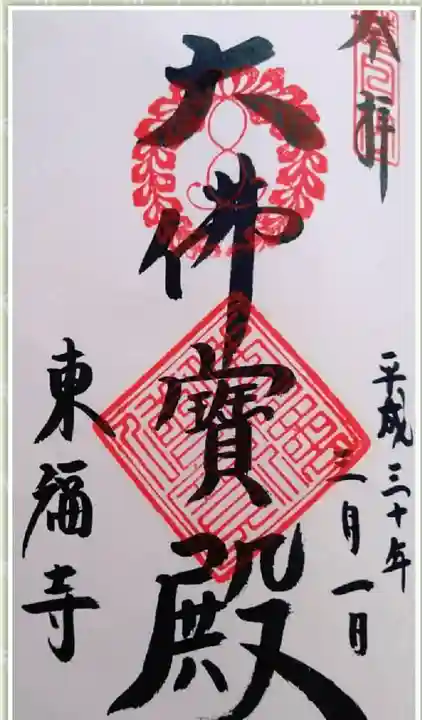 奉拝
平成三十年
三月一日
大佛寶殿
東福寺